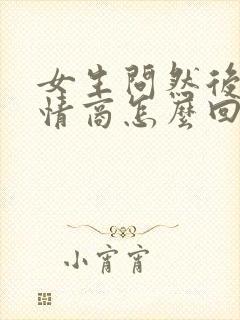 女生問然後
情商怎麼回
小宵宵